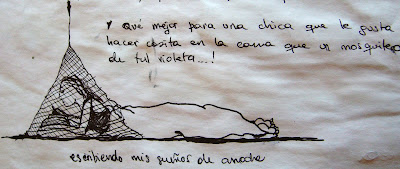 y qué mejor para una chica que le gusta
hacer cosita en la cama que un mosquitero
de tul violeta...!
escribiendo mis sueños de anoche